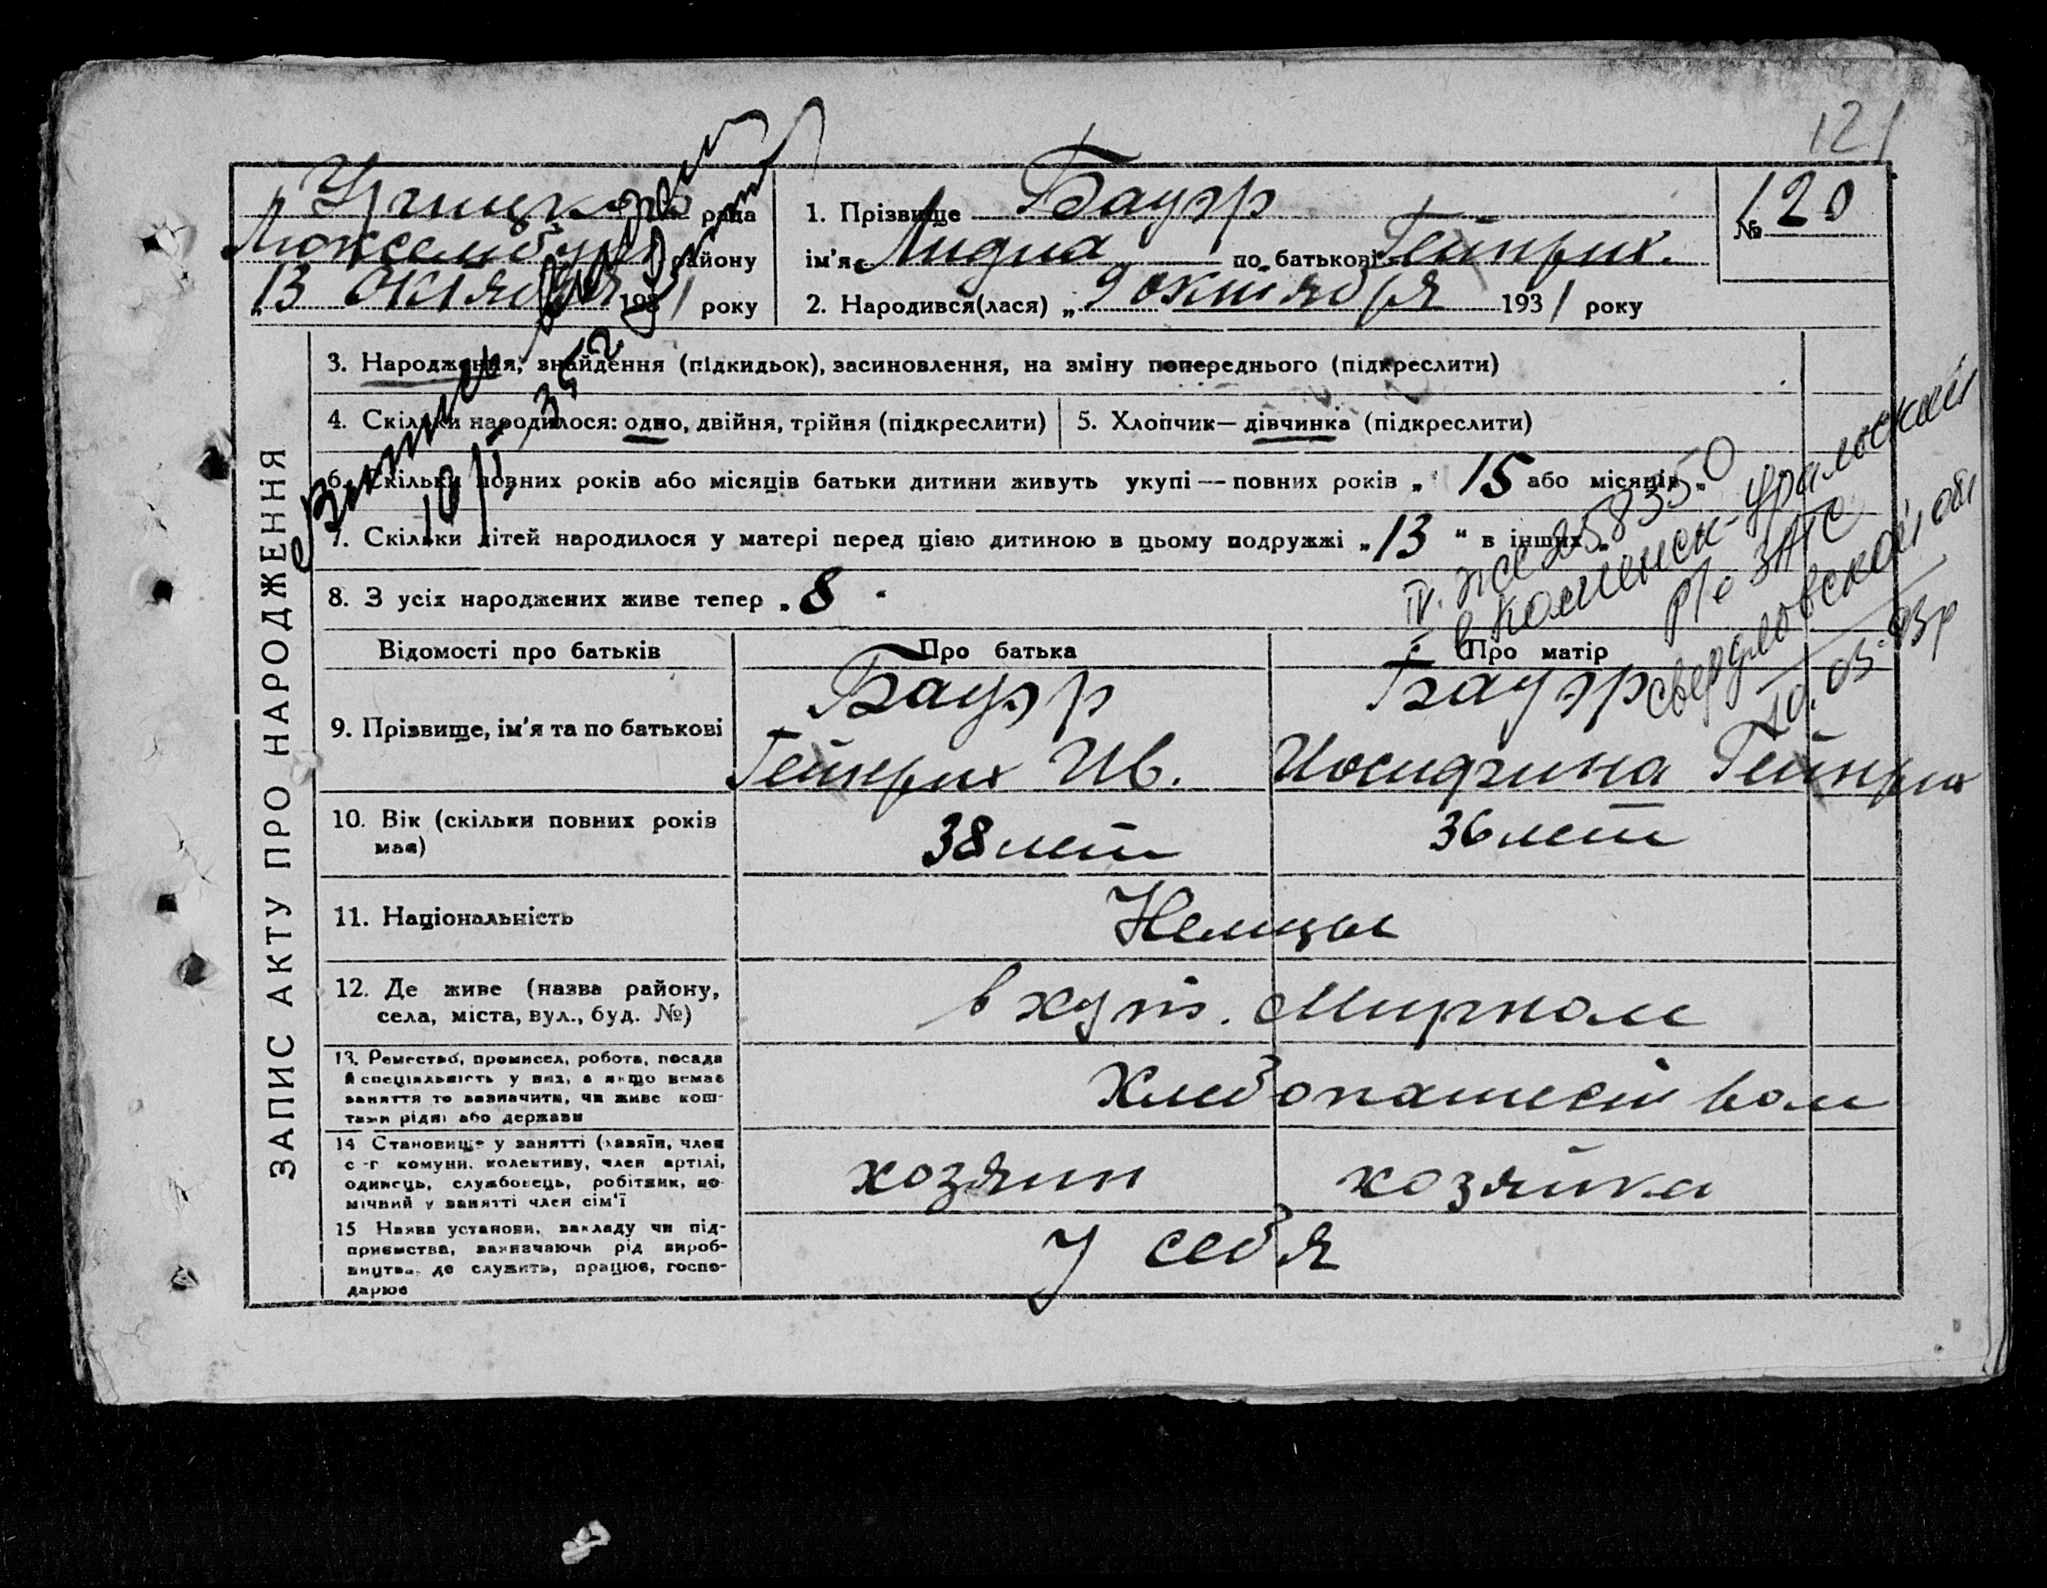 121
рада
Люксембург району
„13 октября 1931 року
1. Прізвище Бауэр
ім'я Лидиа по батькові Гейнрих.
2. Народився(лася) „9 октября 1931 року
№ 120
ЗАПИС АКТУ ПРО НАРОДЖЕННЯ
3. Народження, знайдення (підкидьок), засиновлення, на зміну попереднього (підкреслити)
4. Скільки народилося: одно, двійня, трійня (підкреслити)
5. Хлопчик— дівчинка (підкреслити)
6. Скільки повних років або місяців батьки дитини живуть укупі — повних років „ 15 або місяців „
7. Скільки дітей народилося у матері перед цією дитиною в цьому подружжі „13 “ в інших „
8. З усіх народжених живе тепер „8
10/I 35 г
IV. ЖС 258350
в Каменск-Уральский
р/о ЗАГС
Свердловской обл
10.03.93г
Відомості про батьків
Про батька
Про матір
9. Прізвище, ім'я та по батькові
Бауэр
Гейнрих Ив.
Бауэр
Иосифина Гейнрих
10. Вік (скільки повних років
має)
38 лет
36 лет
11. Національність
Немцы
12. Де живе (назва району,
села, міста, вул., буд. №)
в хут. Мирном
13. Ремество, промисел, робота, посада
й спеціяльність у них, а якщо немає
заняття то зазначити, чи живе кош-
тами рідні або держави
Хлебопашеством
14 Становище у занятті (хазяїн, член
с-г комуни, колективу, член артілі,
одинець, службовець, робітник, по-
мічний у занятті член сім'ї
хозяин
хозяйка
15 Назва установи, закладу чи під-
приємства, зазначаючи рід вироб-
ництва, де служить, працює, госпо-
дарює
у себя